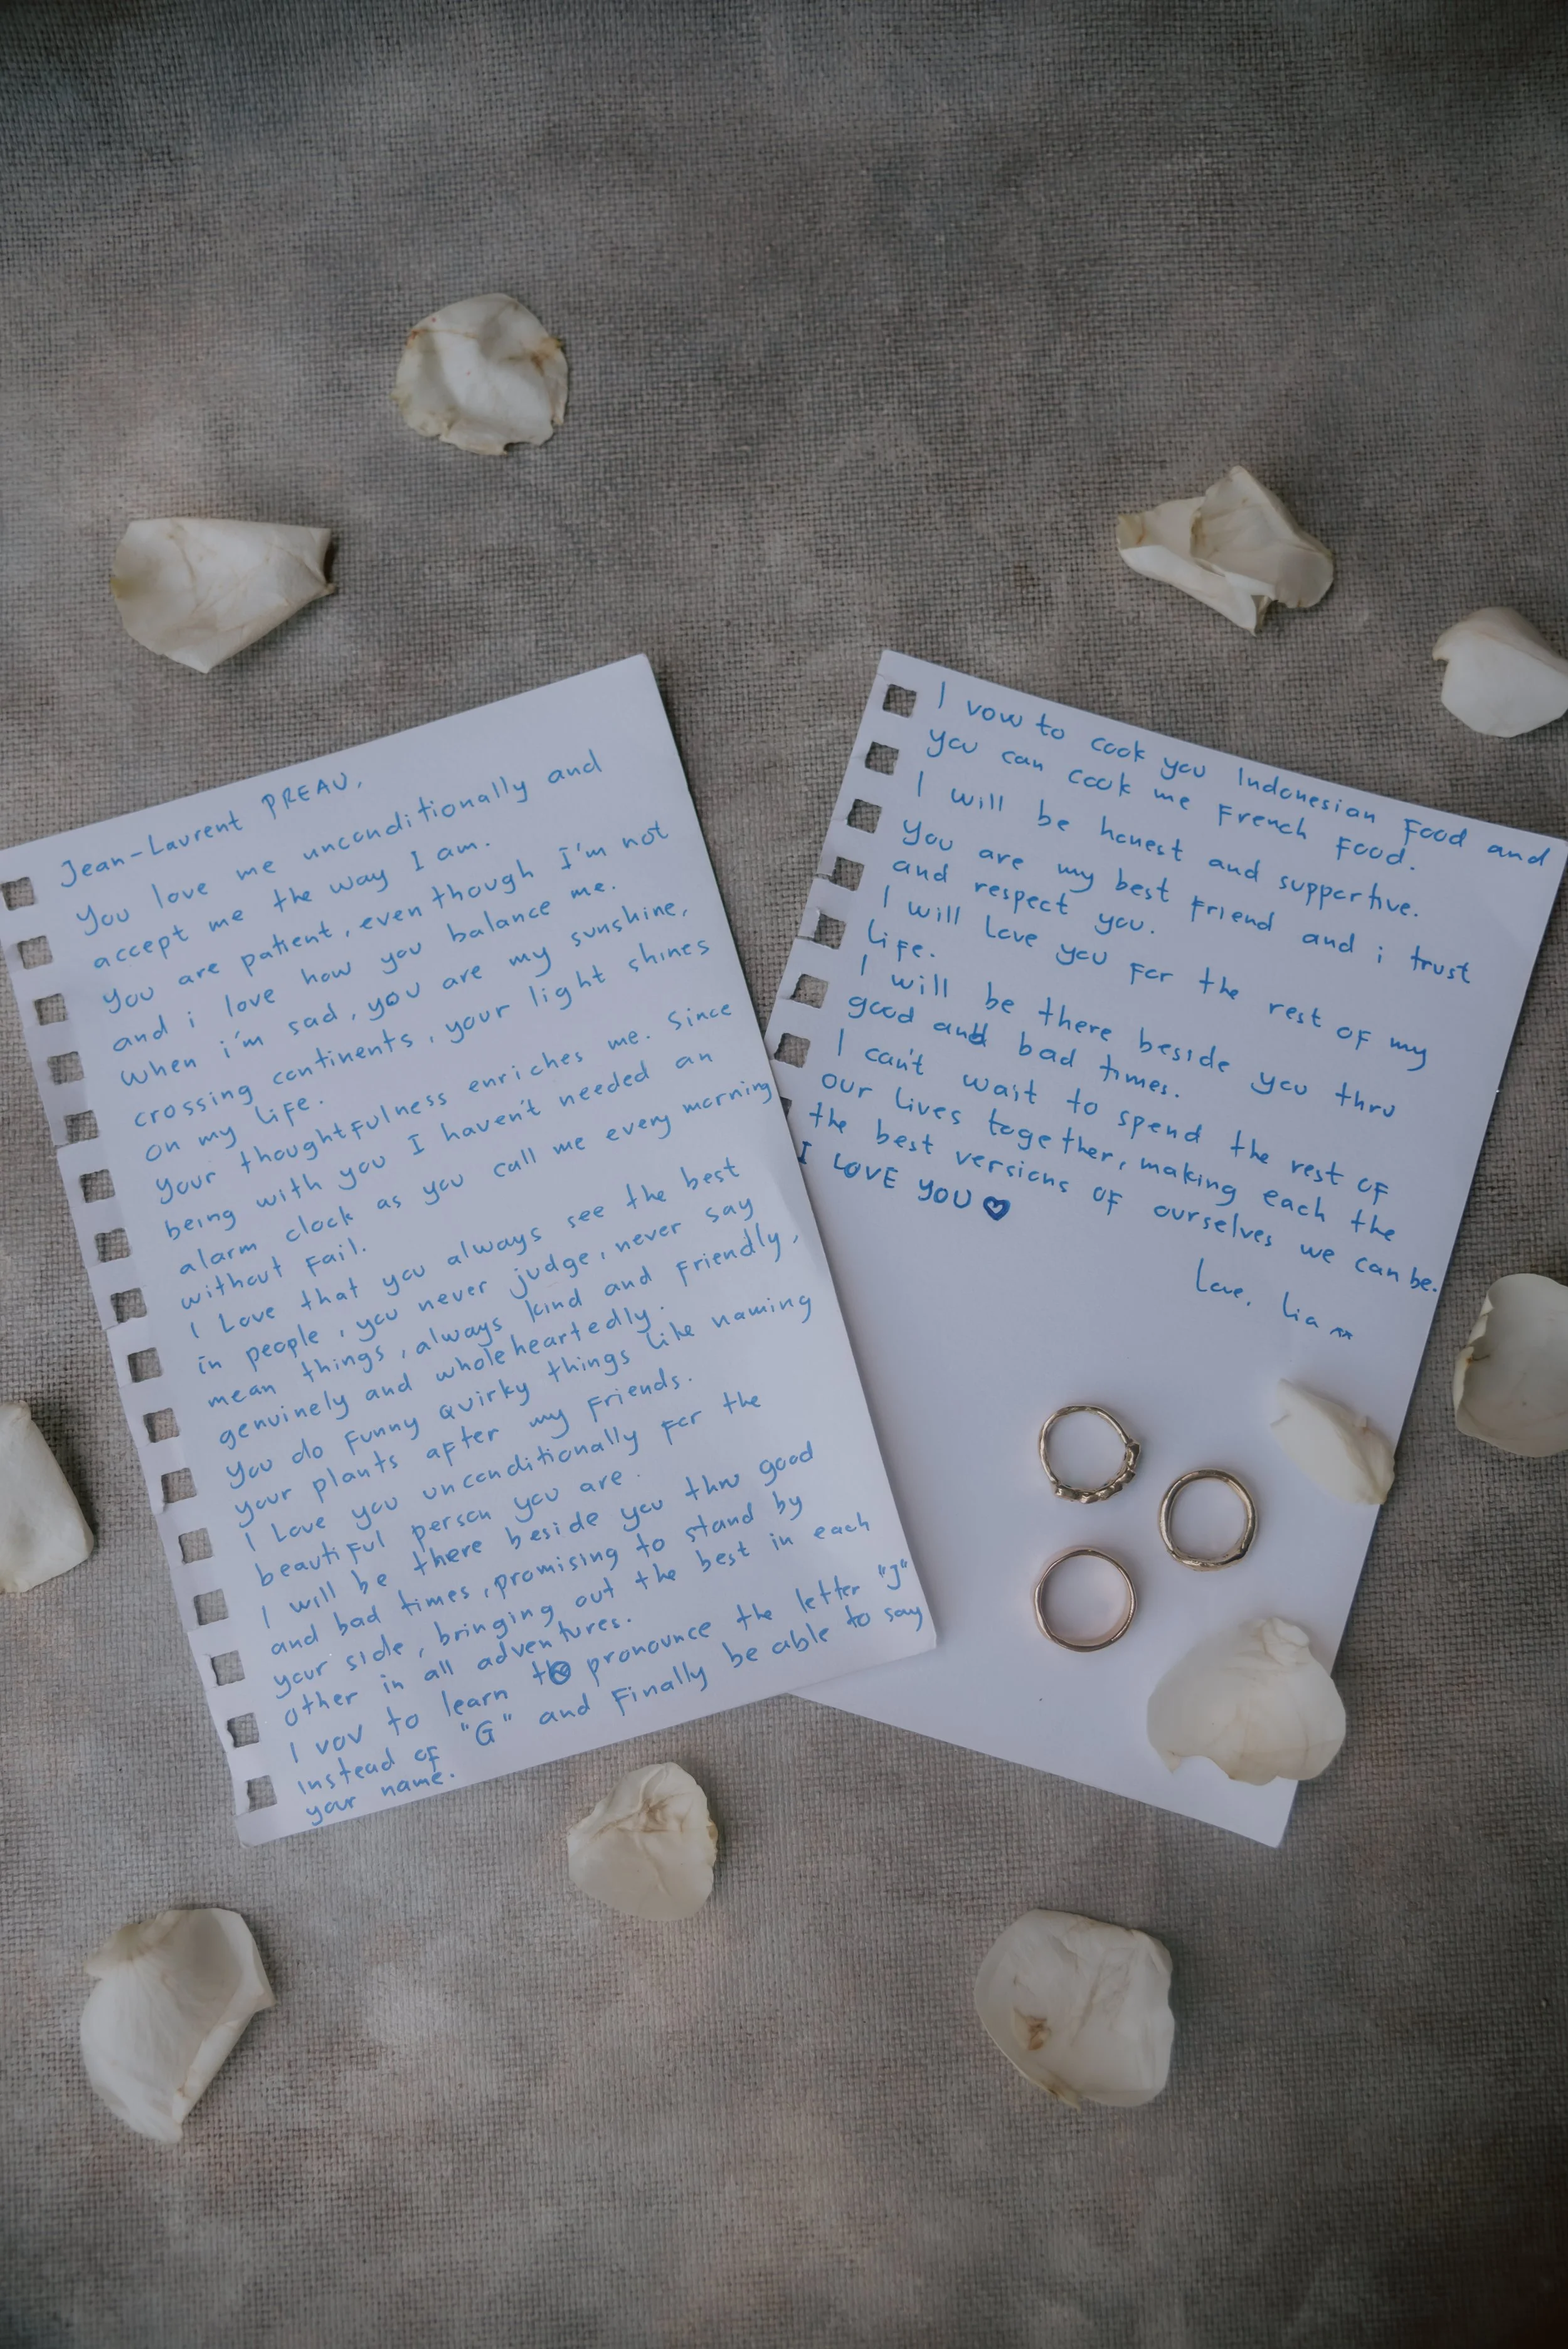 Jean-Laurent PREAU,
You love me unconditionally and
accept me the way I am.
You are patient, even though I'm not
and i love how you balance me.
When i'm sad, you are my sunshine,
crossing continents, your light shines
on my life.
Your thoughtfulness enriches me. Since
being with you I haven't needed an
alarm clock as you call me every morning
without fail.
I Love that you always see the best
in people, you never judge, never say
mean things, always kind and friendly,
genuinely and wholeheartedly.
You do funny quirky things like naming
your plants after my friends.
I Love you unconditionally for the
beautiful person you are.
I will be there beside you thru good
and bad times, promising to stand by
your side, bringing out the best in each
other in all adventures.
I vov to learn to pronounce the letter "J"
instead of "G" and Finally be able to say
your name.
I vow to cook you Indonesian Food and
you can cook me French Food.
I will be honest and supportive.
You are my best friend and i trust
and respect you.
I will Love you for the rest of my
Life.
I will be there beside you thru
good and bad times.
I can't wait to spend the rest of
our lives together, making each the
the best versions of ourselves we can be.
I LOVE YOU ♥
Love, Lia